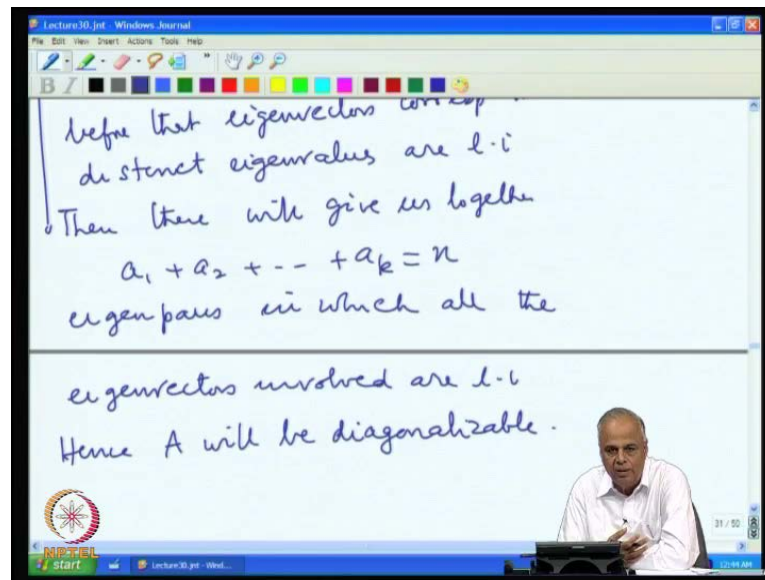 Lecture30.jnt - Windows Journal
File Edit View Insert Actions Tools Help
B I
before that eigenvectors corresp
distinct eigenvalues are l.i
Then these will give us together
a₁ + a₂ + -- + aₖ = n
eigenpairs in which all the
eigenvectors involved are l.i
Hence A will be diagonalizable.
31 / 50
NPTEL
start
Lecture30.jnt - Wind...
12:44 AM